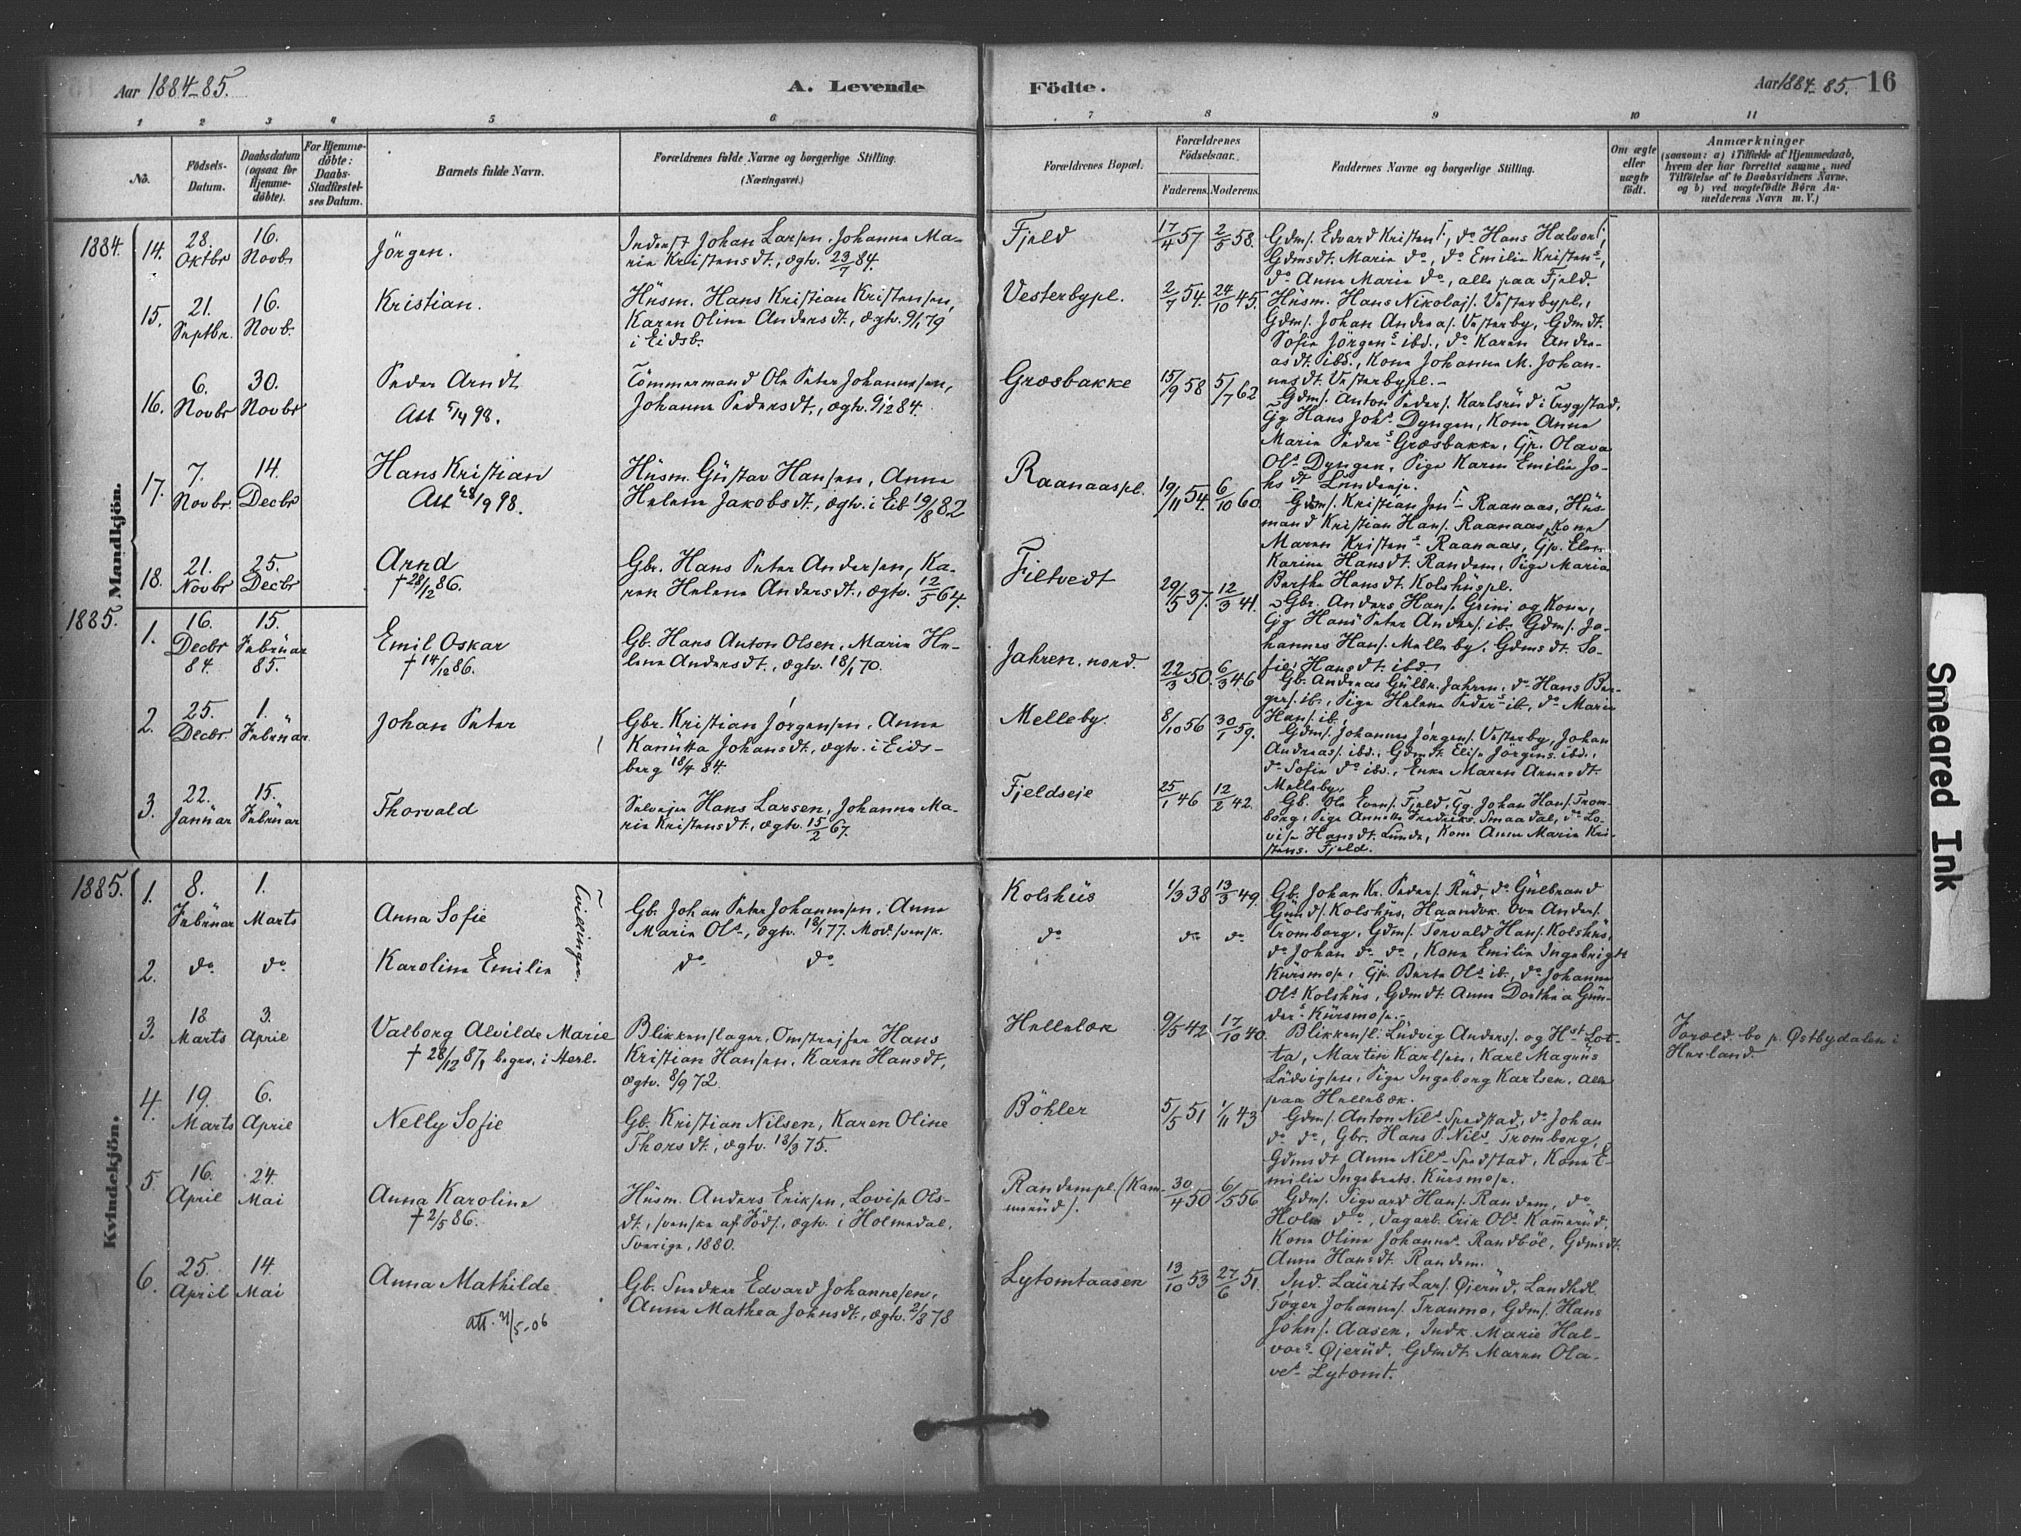 Aar 1884-85.
A. Levende
Födte.
Aar 1884-85. 16
1 2 3 4 5 6 7 8 9 10 11
No.
Födsels-
Datum.
Daabsdatum
(ogsaa for
Hjemme-
döbte).
For Hjemme-
döbte:
Daabs-
Stadfæstel-
ses Datum.
Barnets fulde Navn.
Forældrenes fulde Navne og borgerlige Stilling.
(Næringsvei.)
Forældrenes Bopæl.
Forældrenes
Födselsaar.
Faderens. Moderens.
Faddernes Navne og borgerlige Stilling.
Om ægte
eller
uægte
födt.
Anmærkninger
(saasom: a) i Tilfælde af Hjemmedaab,
hvem der har forrettet samme, med
Tilföielse af to Daabsvidners Navne,
og b) ved uægtefödte Börn An-
melderens Navn m. V.)
Mandkjön.
1884. 14. 28. Oktbr 16. Novb.
Jörgen.
Inderst Johan Larsen, Johanne Ma-
rie Kristensdt., ægtv. 23/1 84.
Fjeld
17/4 57 2/5 58.
Gdms. Edvard Kristens., do Hans Halvors.,
Gdmsdt. Marie do, do Emilie Kristens.,
do Anne Marie do, alle paa Fjeld.
15. 21. Septbr. 16. Novb.
Kristian.
Husm. Hans Kristian Kristensen,
Karen Oline Andersdt., ægtv. 9/1 79
i Eidsb.
Vesterbypl.
2/1 54. 24/10 45.
Husm. Hans Nikolajs. Vesterbypl.,
Gdms. Johan Andreas. Vesterby, Gdmdt.
Sofie Jörgens ibd., do Karen Andre-
asdt. ibd., Kone Johanne M. Johan-
nesdt. Vesterbypl. -
16. 6. Novbr 30. Novbr
Peder Arndt
Att 5/4 98.
Tömmermand Ole Peter Johannesen,
Johanne Pedersdt., ægtv. 9/12 84.
Græsbakke
15/9 58 5/7 62
Gdms. Anton Peders. Karlsrud i Trygstad,
Gg Hans Johs. Dyngen, Kone Anne
Marie Peders. Græsbakke, Gp. Olava
Ols. Dyngen, Pige Karen Emilie Jo-
hsdt. Lundeeje.
17. 7. Novbr. 14. Decbr
Hans Kristian
Att 28/9 98.
Husm. Gustav Hansen, Anne
Helene Jakobsdt., ægtv. i Eib 19/8 82
Raanaaspl.
19/11 54. 6/10 60.
Gdms. Kristian Jens. Raanaas, Hus-
mand Kristian Hans. Raanaas, Kone
Maren Kristens. Raanaas, Gp. Elen
Karine Hansdt. Randem, Pige Maria
Berthe Hansdt. Kolshuspl.
18. 21. Novbr 25. Decbr
Arnd
† 28/12 86.
Gbr. Hans Peter Andersen, Ka-
ren Helene Andersdt., ægtv. 12/5 64.
Fieltvedt
29/5 37. 12/3 41.
Gbr. Anders Hans. Grini og Kone,
Gg Hans Peter Anders. ib. Gdms. Jo-
hannes Hans. Melleby, Gdmsdt. So-
fie Hansdt. ibd.
1885. 1. 16. Decbr 84. 15. Februar 85.
Emil Oskar
† 14/12 86.
Gb. Hans Anton Olsen, Marie He-
lene Andersdt., ægtv. 18/1 70.
Jahren, nord.
22/3 50. 6/3 46
Gb. Andreas Gulbr. Jahren, do Hans Ber-
gers. ib., Pige Helene Peders. ib, do Marie
Hans. ib.
2. 25. Decbr. 1. Februar.
Johan Peter
Gbr. Kristian Jörgensen, Anne
Kanutta Johansdt., ægtv. i Eids-
berg 18/4 84.
Melleby.
8/10 56 30/1 59.
Gdms. Johannes Jörgens. Vesterby, Johan
Andreas. ibd., Gdmdt. Elise Jörgens. ibd.,
do Sofie do ibd., Enke Maren Arnesdt.
Melleby.
3. 22. Januar 15. Februar
Thorvald
Selvejer Hans Larsen, Johanne Ma-
rie Kristensdt., ægtv. 15/2 67.
Fjeldseje
25/1 46 12/2 42.
Gb. Ole Evens. Fjeld, Gg. Johan Hans. Trom-
borg, Pige Annette Fredriks. Smaadal, do Lo-
vise Hansdt. Lunde, Kone Anne Marie Kri-
stens. Fjeld.
Kvindekjön.
1885. 1. 8. Februar 1. Marts
Anna Sofie
Tvillinger.
Gb. Johan Peter Johannesen, Anne
Marie Ols., ægtv. 18/1 77. Mod. svensk.
Kolshus
1/3 38 13/3 49.
Gb. Johan Kr. Peders. Rud, do Gulbrand
Gunds. Kolshus, Haandv. Ove Anders.
Tromborg, Gdms. Torvald Hans. Kolshus,
do Johan do do, Kone Emilie Ingebrigdt.
Kursmose, Gp. Berte Ols. ib., do Johanne
Ols. Kolshus, Gdmdt. Anne Dorthea Gun-
ders. Kursmose. -
2. do do
Karoline Emilie
do do
do
do do
3. 18 Marts 3. April
Valborg Alvilde Marie
† 28/12 87, begr. i Herl.
Blikkenslager, Omstrejfer Hans
Kristian Hansen, Karen Hansdt.,
ægtv. 8/9 72.
Hellebæk
9/5 42 17/10 40.
Blikkensl. Ludvig Anders. og Hst. Lot-
ta, Martin Karlsen, Karl Magnus
Ludvigsen, Pige Ingeborg Karlsen, alle
paa Hellebæk.
Foræld. bo p. Østbydalen i
Herland.
4. 19. Marts 6. April
Nelly Sofie
Gb. Kristian Nilsen, Karen Oline
Thorsdt., ægtv. 18/3 75.
Böhler
5/5 51 1/11 43
Gdms. Anton Nils. Spedstad, do Johan
do do, Gbr. Hans P. Nils. Tromborg,
Gdmsdt Anne Nils. Spedstad, Kone E-
milie Ingebrets. Kursmose.
5. 16. April 24. Mai
Anna Karoline
† 2/5 86.
Husm. Anders Eriksen, Lovise Ols-
dt., svenske af Föds., ægtv. i Holmedal,
Sverige, 1880.
Randempl. (Kam-
merud).
30/4 50 6/5 56
Gdms. Sigvard Hans. Randem, do
Holm do, Dagarb. Erik Ols. Kamerud,
Kone Oline Johanns. Randböl, Gdmsdt.
Anne Hansdt. Randem.
6. 25. April 14. Mai
Anna Mathilde.
att. 21/5-06
Gb. Snedker Edvard Johannesen,
Anne Mathea Johnsdt., ægtv. 2/8 78
Lytomtaasen
13/10 53 27/6 51.
Ind. Laurits Lars. Øjerud, Landhdl.
Töger Johannes. Traumo, Gdms. Hans
Johs. Aasen, Indk. Marie Hal-
vors. Øjerud, Gdmdt. Maren Ola-
ves. Lytomt.
Smeared Ink